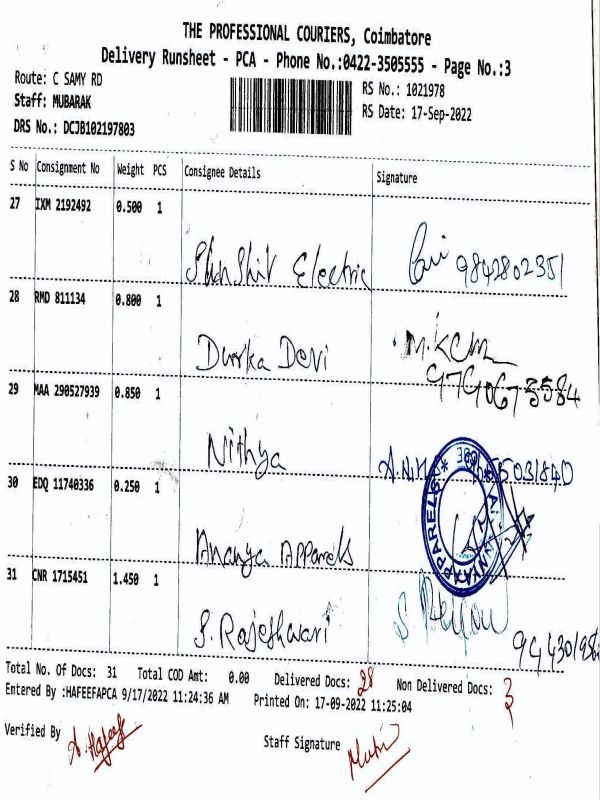 THE PROFESSIONAL COURIERS, Coimbatore
Delivery Runsheet - PCA - Phone No.:0422-3505555 - Page No.:3
Route: C SAMY RD
RS No.: 1021978
Staff: MUBARAK
RS Date: 17-Sep-2022
DRS No.: DCJB102197803
S No Consignment No Weight PCS Consignee Details Signature
27 IXM 2192492 0.500 1
Shin Shiv Electric 9842802351
28 RMD 811134 0.800 1
Durka Devi
9790673584
29 MAA 290527939 0.850 1
Nithya
30 EDQ 11740336 0.250 1
Ananya Apparels
APPARELS
31 CNR 1715451 1.450 1
S. Rajeshwari
Total No. Of Docs: 31 Total COD Amt: 0.00 Delivered Docs: 28 Non Delivered Docs: 3
Entered By :HAFEEFAPCA 9/17/2022 11:24:36 AM Printed On: 17-09-2022 11:25:04
Verified By A. Hafeefa
Staff Signature